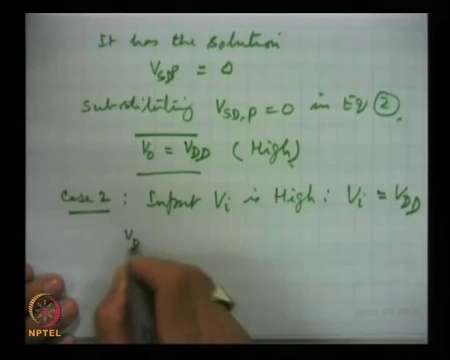 It has the solution
V_SDP = 0
Substituting V_SD,P = 0 in Eq ②.
V_0 = V_DD (High)
Case 2 : Input V_i is High : V_i = V_DD
V_D
NPTEL